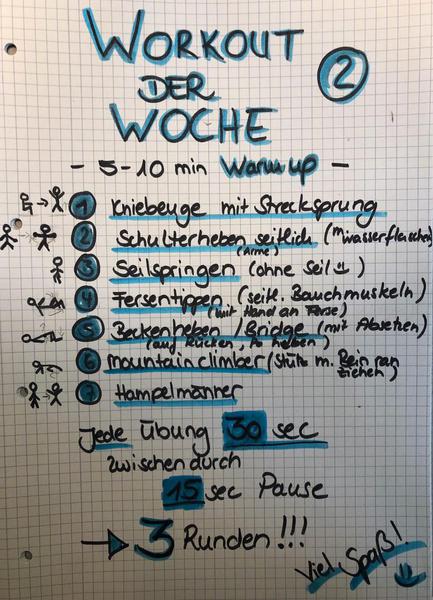 WORKOUT
2
DER
WOCHE
- 5-10 min Warm up -
1 Kniebeuge mit Strecksprung
2 Schulterheben seitlich (m. Wasserflaschen)
(Arme)
3 Seilspringen (ohne Seil)
4 Fersentippen (seitl. Bauchmuskeln)
(mit Hand an Ferse)
5 Beckenheben / Bridge (mit Absetzen)
(auf Rücken, Po heben)
6 Mountain climber (Stütz m. Bein ran
ziehen)
7 Hampelmänner
Jede Übung 30 sec
zwischendurch
15 sec Pause
→ 3 Runden!!!
Viel Spaß!